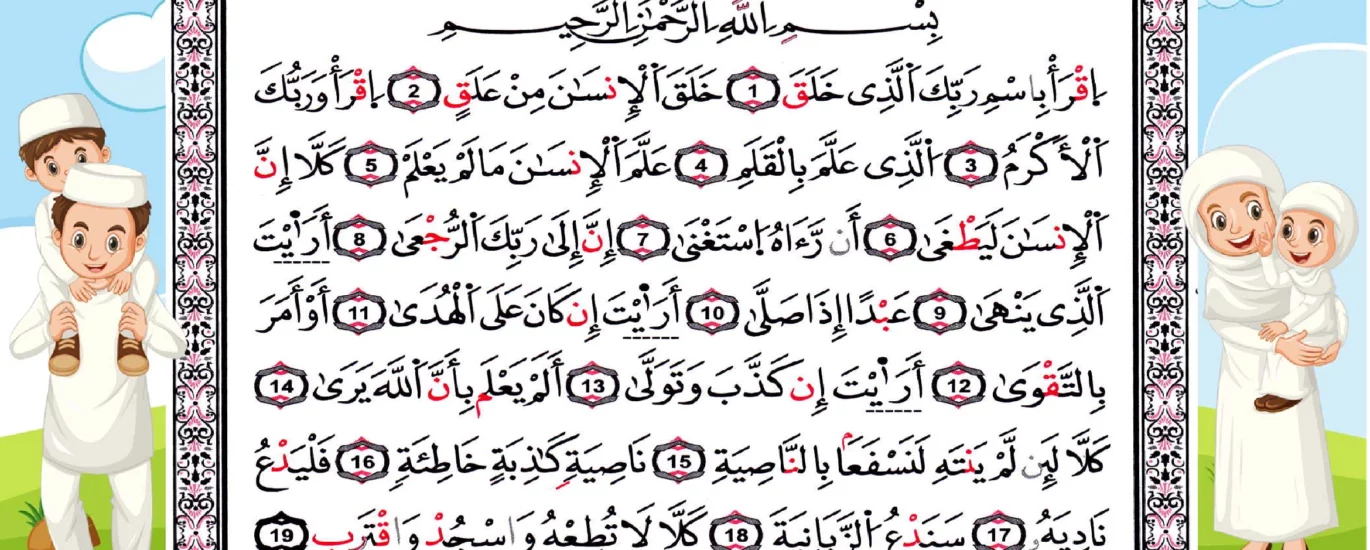 بِسْمِ اللَّهِ الرَّحْمَٰنِ الرَّحِيمِ
اِقْرَأْ بِاسْمِ رَبِّكَ اَلَّذِى خَلَقَ 1 خَلَقَ اَلْإِنسَٰنَ مِنْ عَلَقٍ 2 اِقْرَأْ وَرَبُّكَ
اَلْأَكْرَمُ 3 اَلَّذِى عَلَّمَ بِالْقَلَمِ 4 عَلَّمَ اَلْإِنسَٰنَ مَا لَمْ يَعْلَمْ 5 كَلَّا إِنَّ
اَلْإِنسَٰنَ لَيَطْغَىٰ 6 أَن رَّءَاهُ اسْتَغْنَىٰ 7 إِنَّ إِلَىٰ رَبِّكَ اَلرُّجْعَىٰ 8 أَرَٰيْتَ
اَلَّذِى يَنْهَىٰ 9 عَبْدًا إِذَا صَلَّىٰ 10 أَرَٰيْتَ إِن كَانَ عَلَى اَلْهُدَىٰ 11 أَوْ أَمَرَ
بِالتَّقْوَىٰ 12 أَرَٰيْتَ إِن كَذَّبَ وَتَوَلَّىٰ 13 أَلَمْ يَعْلَم بِأَنَّ اَللَّهَ يَرَىٰ 14
كَلَّا لَئِن لَّمْ يَنتَهِ لَنَسْفَعًۢا بِالنَّاصِيَةِ 15 نَاصِيَةٍ كَٰذِبَةٍ خَاطِئَةٍ 16 فَلْيَدْعُ
نَادِيَهُۥ 17 سَنَدْعُ اَلزَّبَانِيَةَ 18 كَلَّا لَا تُطِعْهُ وَاسْجُدْ وَاقْتَرِب 19